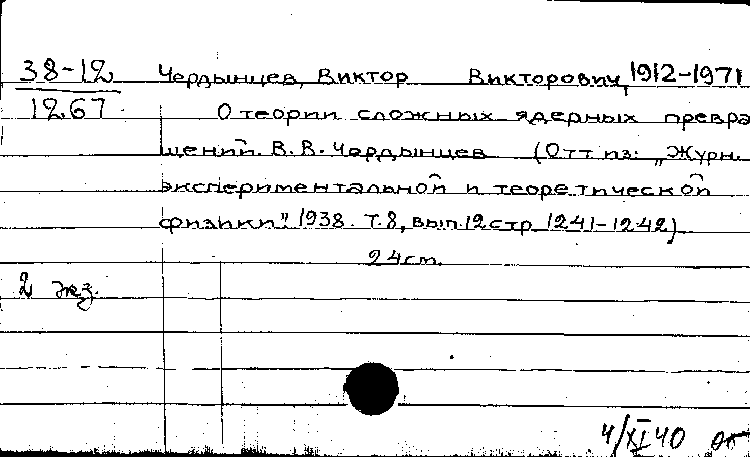 38-12
1267
Чердынцев, Виктор Викторович, 1912-1971
О теории сложных ядерных превра
щений. В. В. Чердынцев (Отт из: „Журн.
экспериментальной и теоретической
физики". 1938. Т. 8, вып. 12 стр 1241-1242)
24см.
2 экз.
4/XI 40